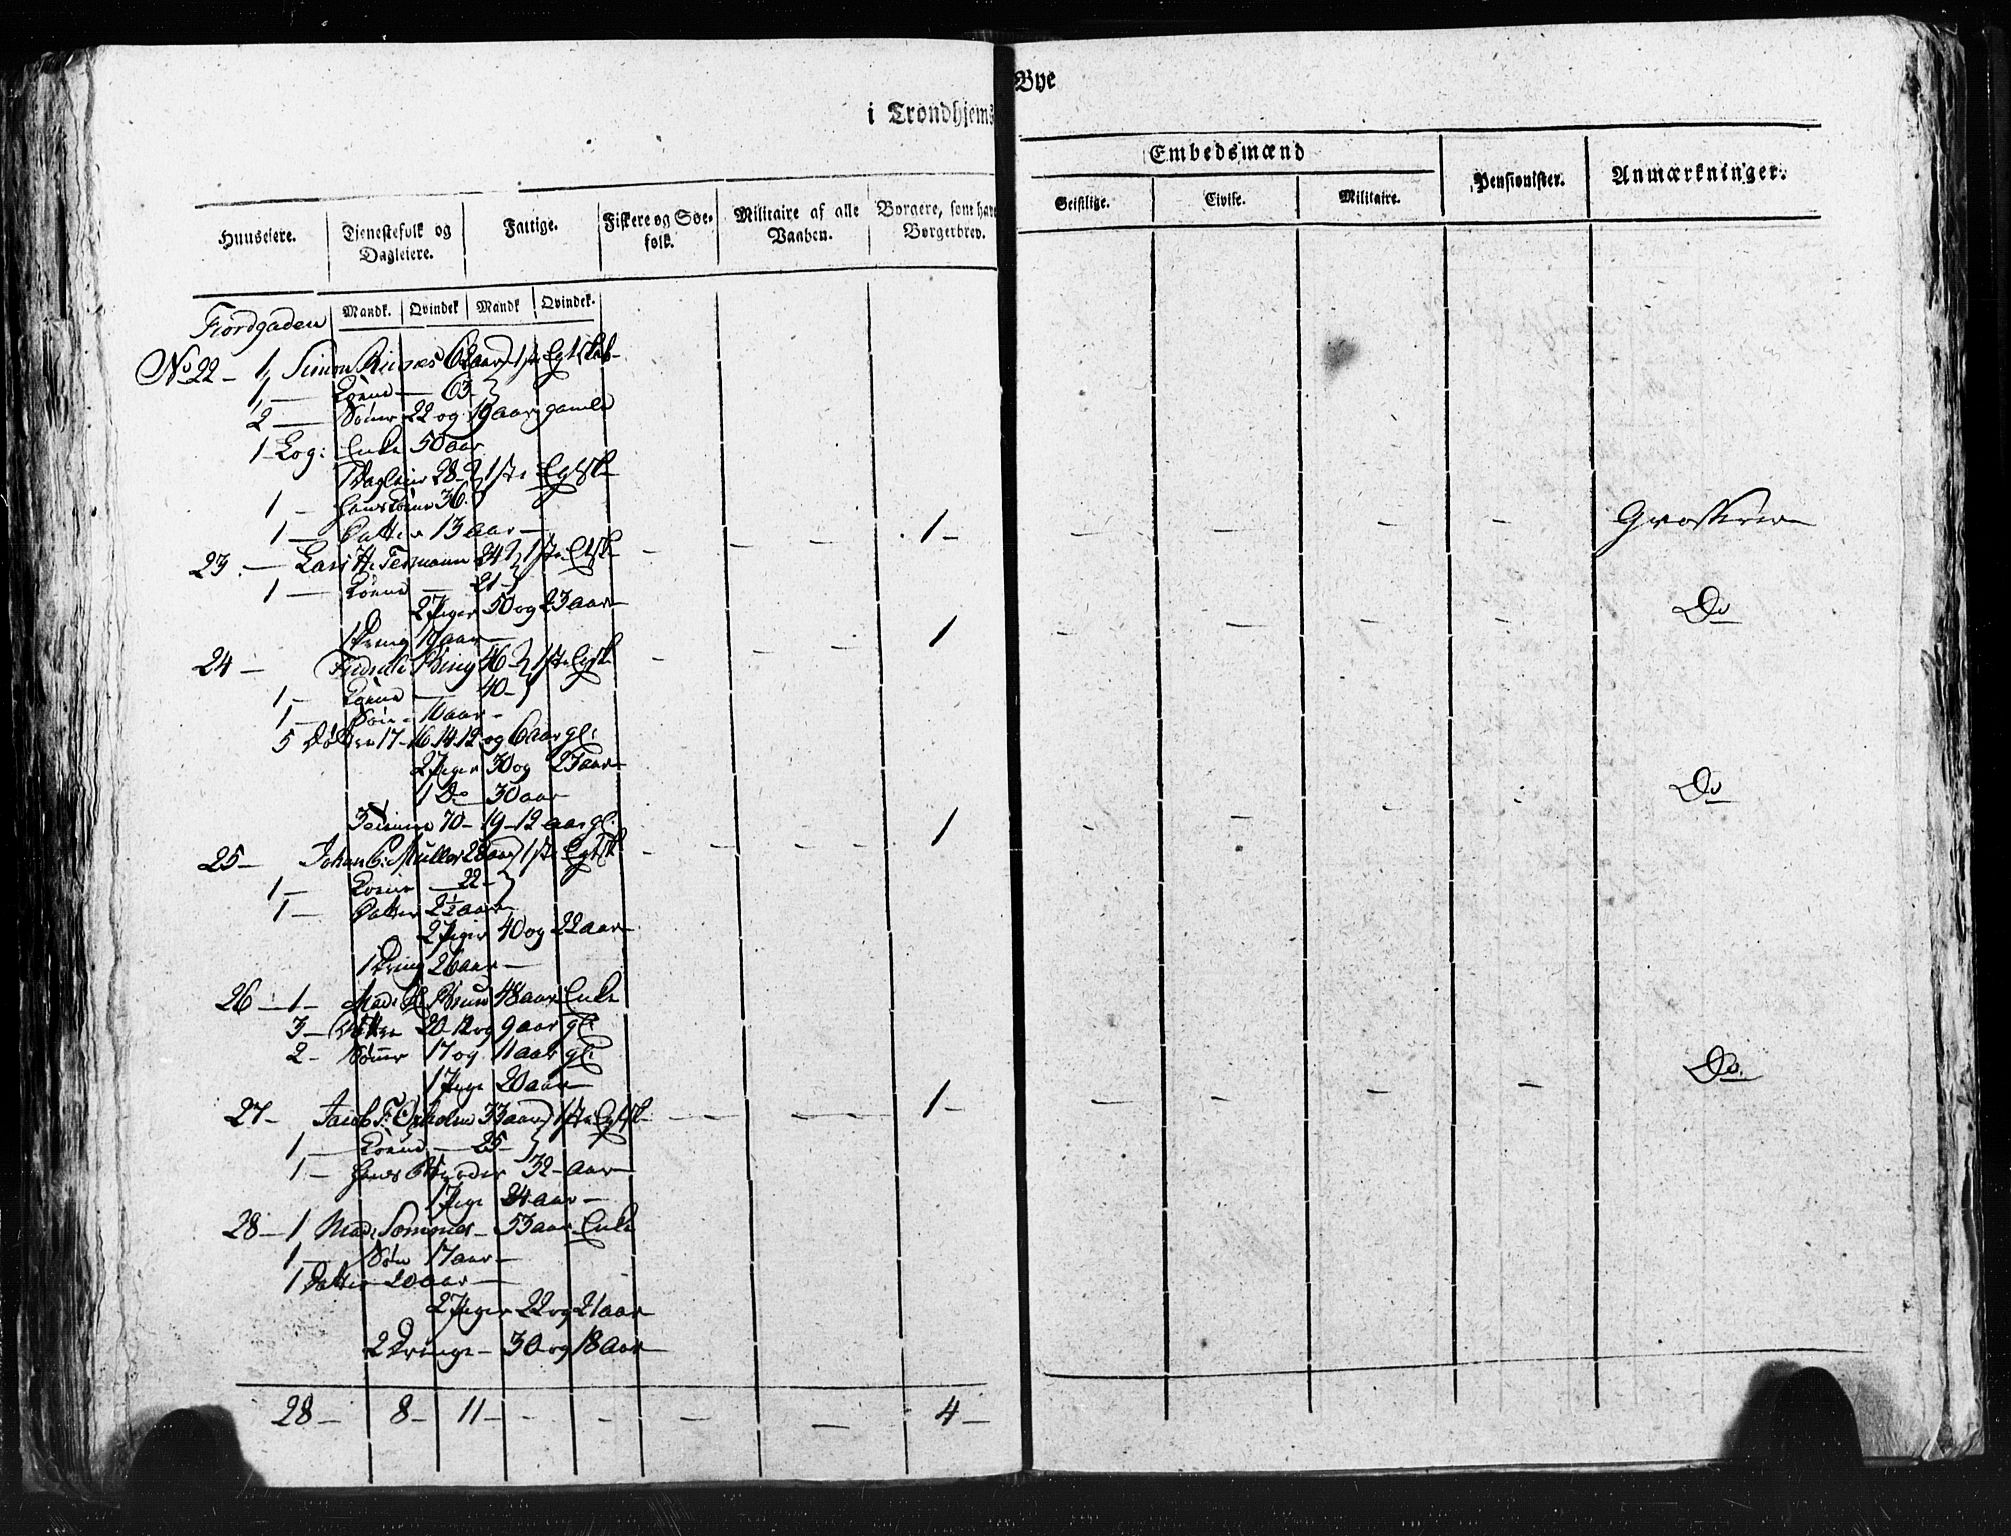 i Trondhjems Bye
Huuseiere.
Tjenestefolk og Dagleiere.
Fattige.
Fiskere og Søe-folk.
Militaire af alle Vaaben.
Borgere, som have Borgerbrev.
Embedsmænd
Geistlige.
Civile.
Militaire.
Pensionister.
Anmærkninger.
Mandk. Qvindek Mandk Qvindek.
Fiordgaden
No 22 – 1, Simon 62 aar 1ste Egtskab
1 – Kone – 63
2 – Sønner 22 og 19 aar gamle
1 Log: Enke 50 aar
1 Dagleier 28 1ste Egtsk
1 – hans Kone 36
1 – Datter 13 aar –
23. – Lars H. Termann 24 1ste Etsk – – – – 1 – – – – – Grosserer
1 – Kone – 21 –
2 Piger 50 og 23 aar
1 Dreng 19 aar –
24 – Fridrik Bing 46 – 1ste Egtsk – – – 1 – – – – Do
1 – Kone – 40 –
1 – Søn – 10 aar –
5 Døttre 17 – 16 14 12 og 6 aar gl:
2 Piger 30 og 23 aar
1 Do 30 aar
3 70 – 19 – 12 aar gl.
25 – Johan C. Müller 28 aar 1ste Egtsk – – – – 1 – – – – Do
1 – Kone – 22 –
1 – Datter 2½ aar
2 Piger 40 og 22 aar
1 Dreng 26 aar –
26 – 1 – Mad: Brun 48 aar Enke
3 – Døttre 20 12 og 9 aar gl:
2 – Sønner 17 og 11 aar gl:
1 Pige 20 aar
27 – Jacob F: 33 aar 1ste Egtsk – – – – 1 – – – – – Do.
1 – Kone – 25 –
1 – hans 32 – aar
1 Pige 24 aar –
28 – 1 Mad: Sommer – 53 aar Enke
1 – Søn 17 aar –
1 Datter 20 aar –
2 Piger 22 og 21 aar
2 Drenge – 30 og 18 aar
28 – 8 – 11 – – – – – 4 –